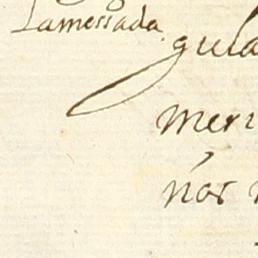 Lamessada
gula
meri
nos